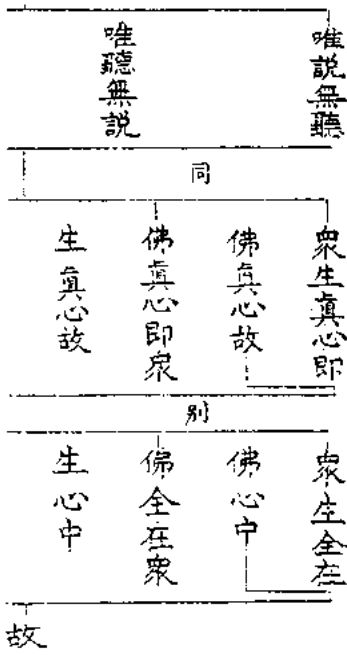 唯説無聽
唯聽無説
同
衆生真心即
佛真心故
佛真心即衆
生真心故
別
衆生全在
佛心中
佛全在衆
生心中
故